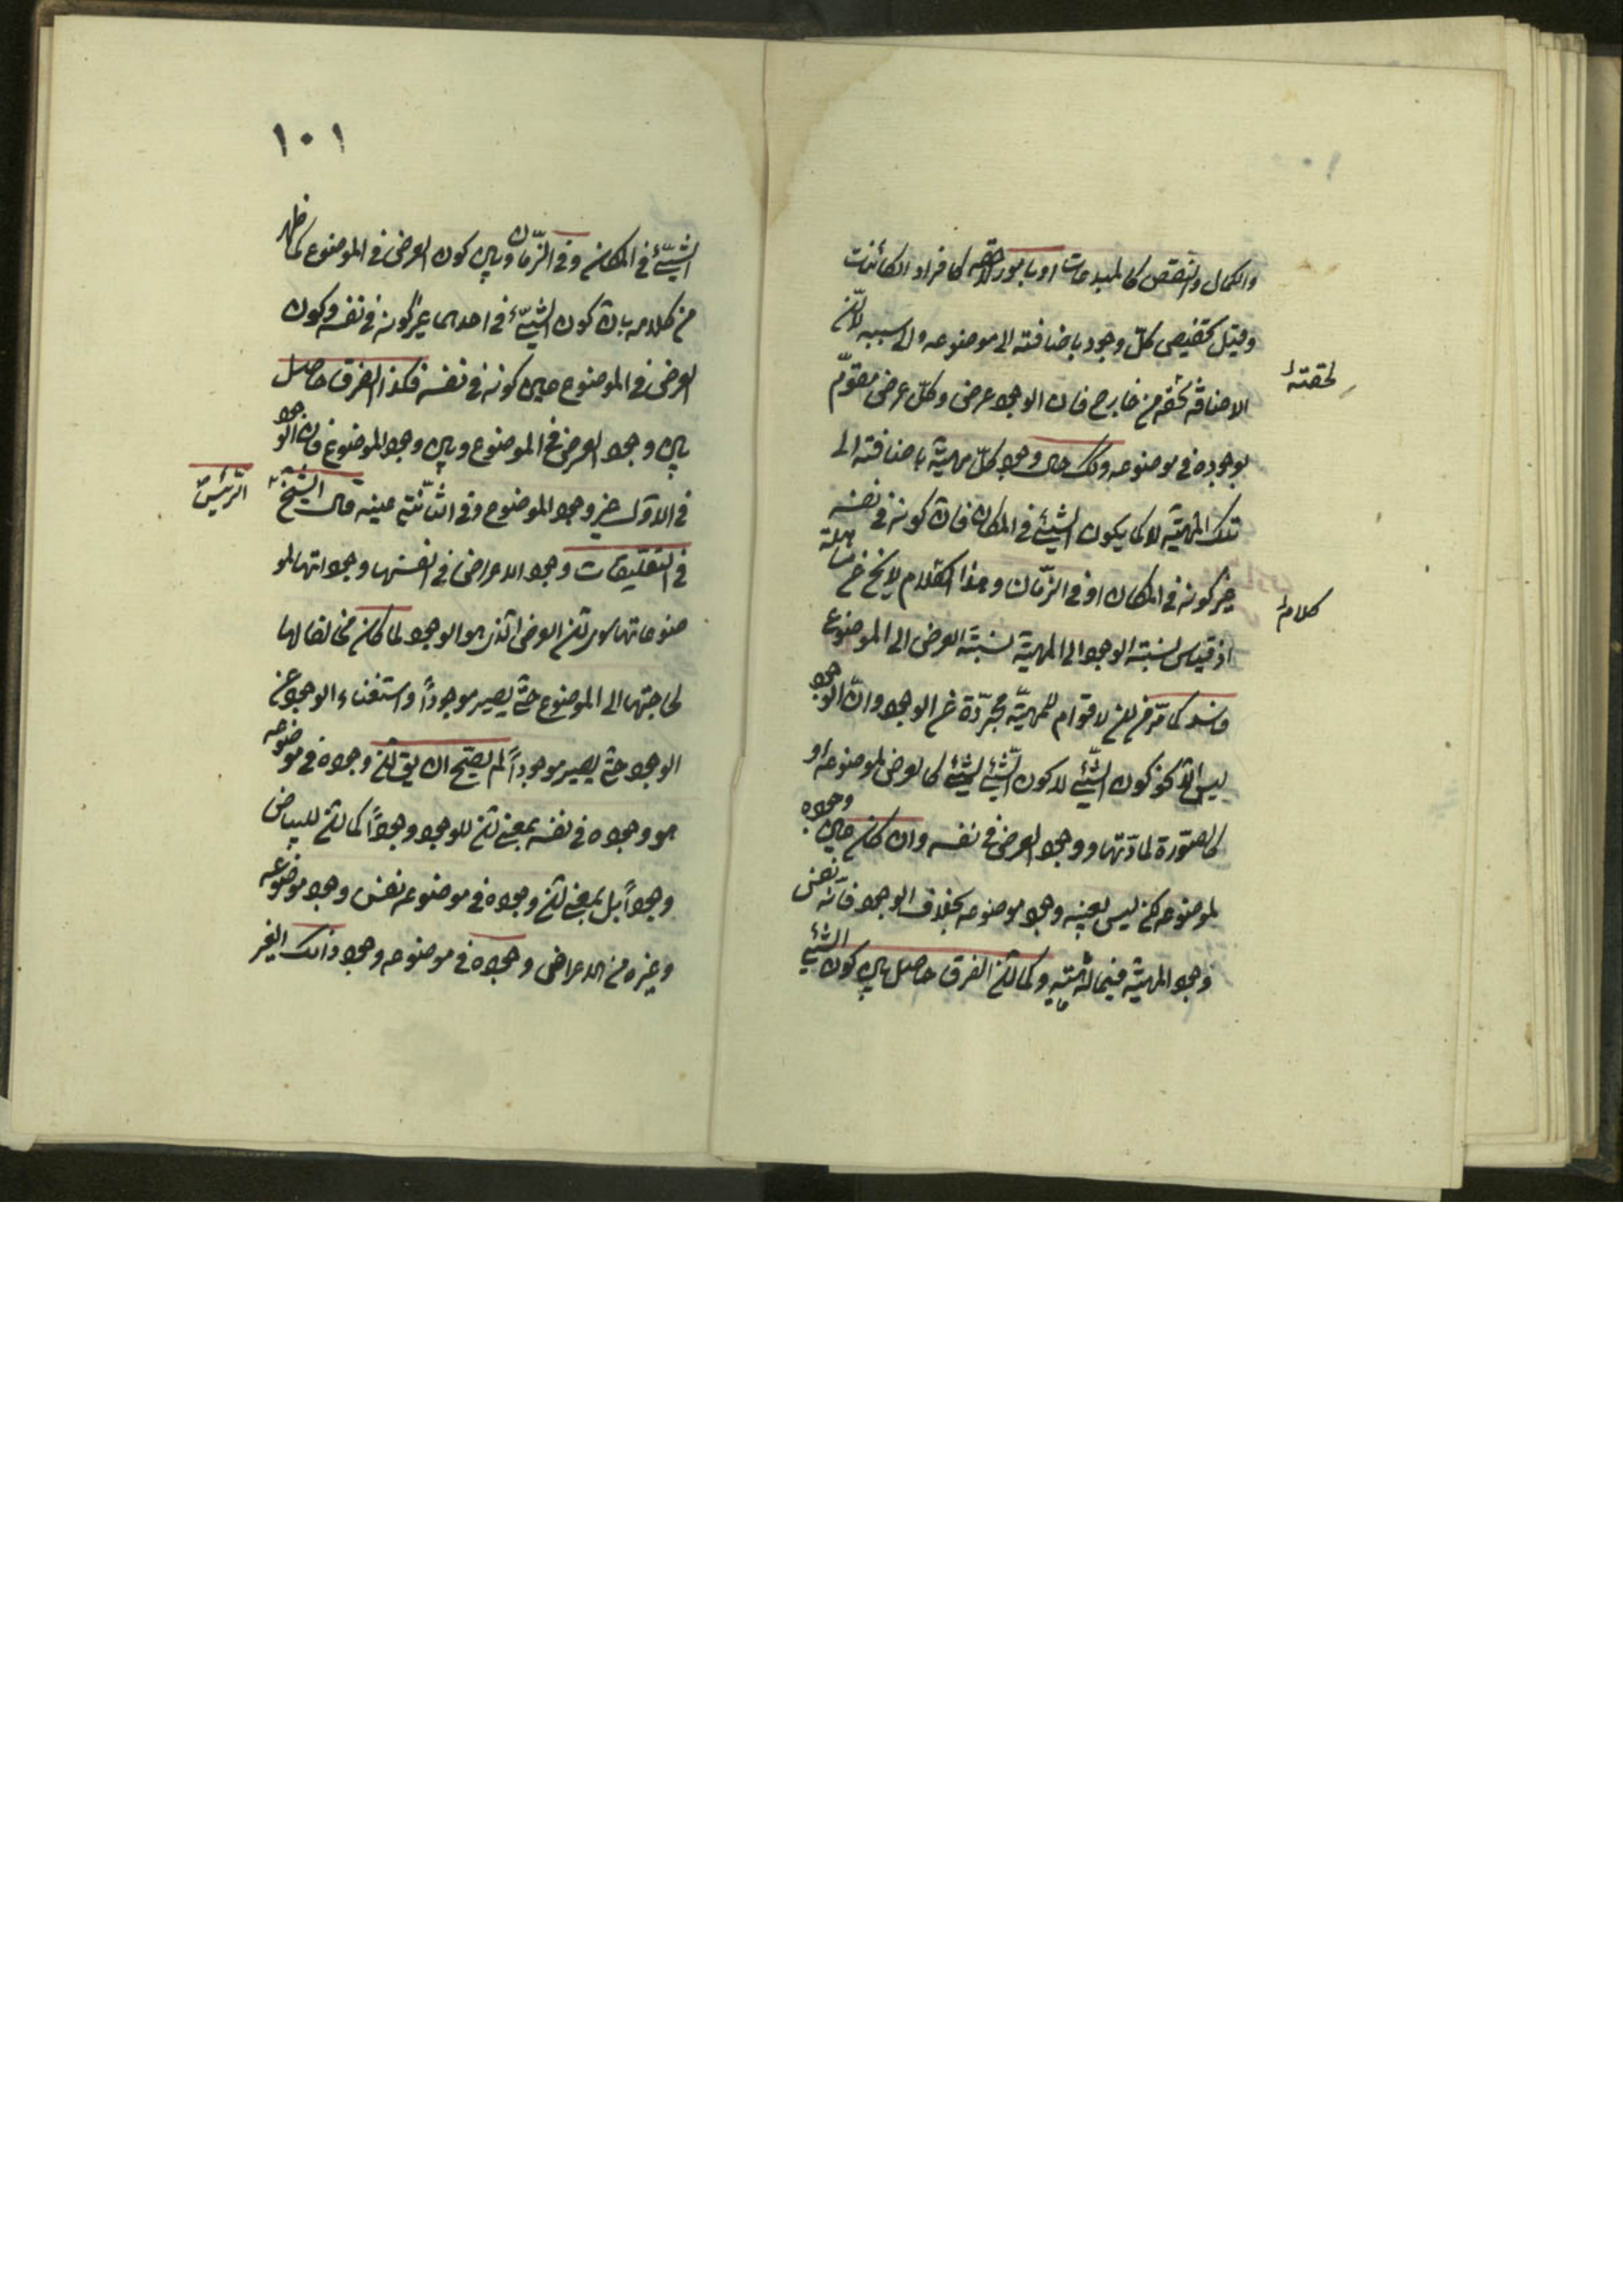 والكمال والنقص كالمبدعات او بامور لاحقه كافراد الكائنات
وقيل تخصيص كلّ وجود باضافته الى موضوعه والى سببه لا انّ
الاضافة لحقته من خارج فان الوجود عرض وكلّ عرض متقوّم
لحقتهُ
بوجوده فى موضوعه وكك حال وجود كلّ مهيّة باضافته الى
تلك المهيّة لا كما يكون الشيئ فى المكان فانّ كونه فى نفسه
غير كونه فى المكان او فى الزّمان وهذا الكلام لا يخ عن مساهلة
كلامهُ
اذ قياس نسبته الوجود الى المهيّة بنسبة العرض الى الموضوع
فاسد كما مرّ من ان لا قوام للمهيّة مجرّدة عن الوجود وانّ الوجود
ليس الّا كون الشّيئ لا كون الشّيئ لشيئ كالعرض لموضوعه او
كالصّورة لمادّتها ووجود العرض فى نفسه وان كان عين وجوده
لموضوعه لكن ليس بعينه وجود موضوعه بخلاف الوجود فانّه نفس
وجود المهيّة فيما له مهيّة وكما انّ الفرق حاصل بين كون الشّيئ
١٠١
الشّيئ فى المكان وفى الزّمان وبين كون العرض فى الموضوع كما ظهر
من كلامه بانّ كون الشّيئ فى احدهما غير كونه فى نفسه وكون
العرض فى الموضوع عين كونه فى نفسه فكذا الفرق حاصل
بين وجود العرض فى الموضوع وبين وجود الموضوع فان الوجود
فى الاوّل غير وجود الموضوع وفى الثّانى عينه قال الشيخ
الرّئيس
فى التعليقات وجود الاعراض فى انفسها وجوداتها لمو
ضوعاتها سوى انّ العرض الّذى هو الوجود لما كان مخالفا لها
لحاجتها الى الموضوع حتّى يصير موجوداً واستغناء الوجود عن
الوجود حتّى يصير موجوداً لم يصحّ ان يق انّ وجوده فى موضوعه
هو وجوده فى نفسه بمعنى انّ للوجود وجوداً كما انّ للبياض
وجوداً بل بمعنى انّ وجوده فى موضوعه نفس وجود موضوعه
وغيره من الاعراض وجوده فى موضوعه وجود ذالك الغير